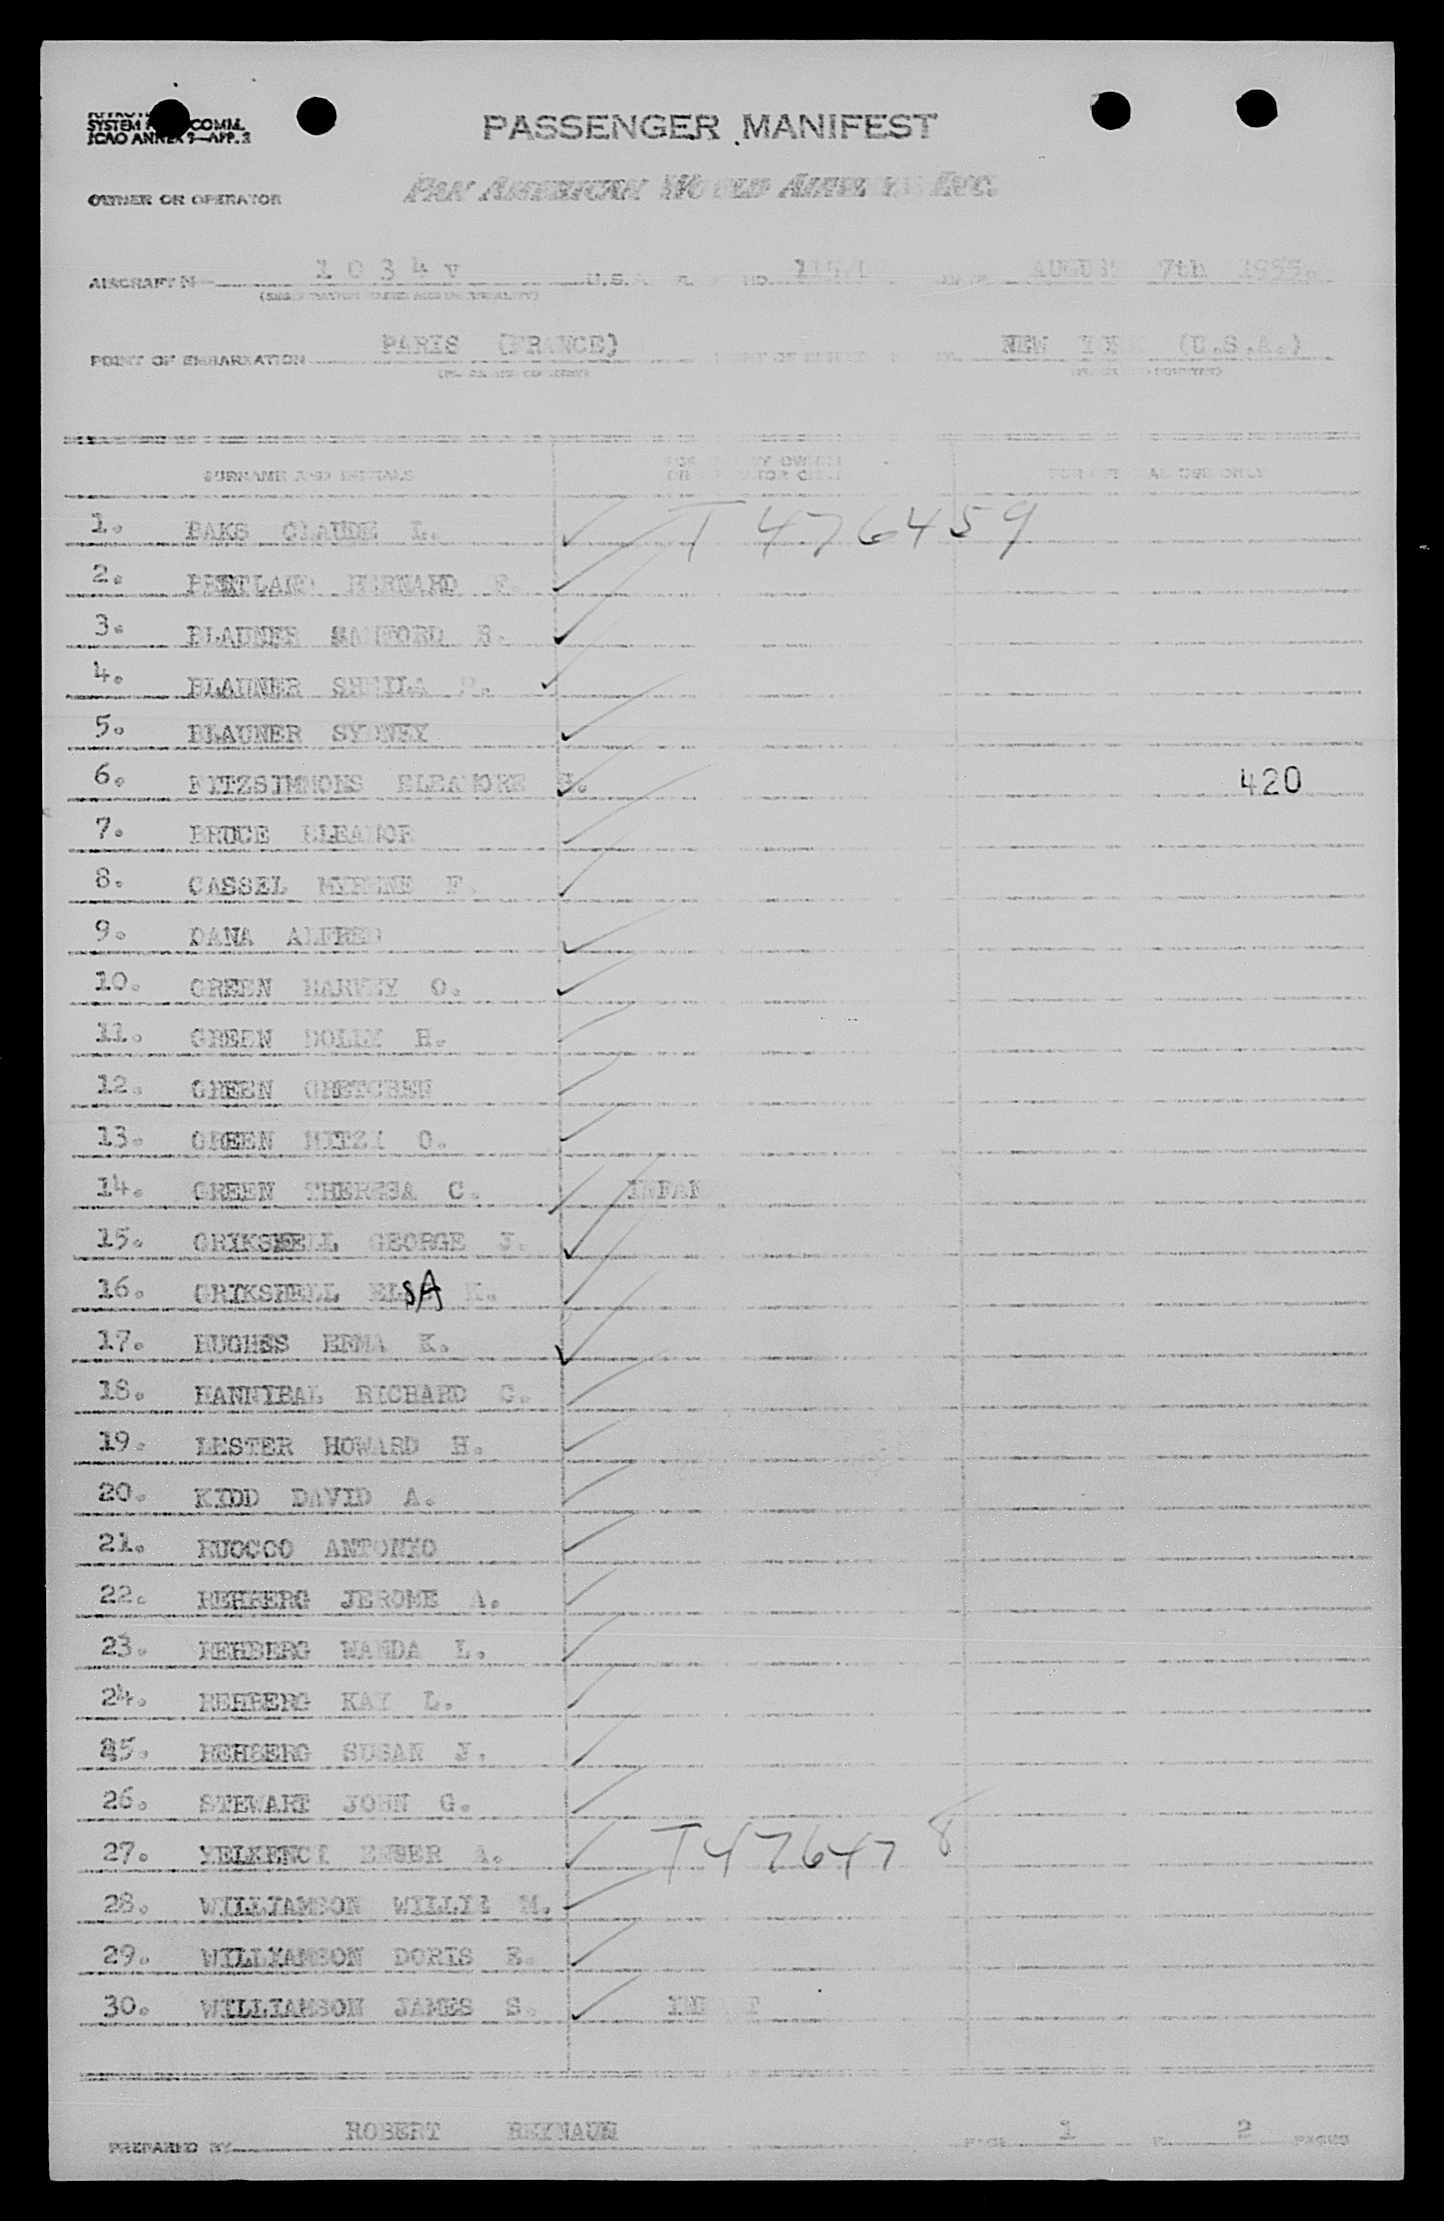 SYSTEM COMM.
ICAO ANNEX 9—APP. 3
PASSENGER MANIFEST
OWNER OR OPERATOR PAN AMERICAN WORLD AIRWAYS INC.
AIRCRAFT N 1 0 3 4 v U.S.A. NO. AUGUST 7th 1955.
POINT OF EMBARKATION PARIS (FRANCE) NEW YORK (U.S.A.)
SURNAME AND INITIALS FOR USE BY OWNER OR OPERATOR ONLY FOR OFFICIAL USE ONLY
1. PAKS CLAUDE L. T 476459
2. BERNARD
3. BLAUNER SANFORD S.
4. BLAUNER SHEILA
5. BLAUNER SYDNEY
6. FITZSIMMONS ELEANORE G. 420
7. BRUCE ELEANOR
8. CASSEL MYRENE F.
9. DANA ALFRED
10. GREEN HARVEY O.
11. GREEN DOLLY H.
12. GREEN GRETCHEN
13. GREEN MITZI O.
14. GREEN THERESA C. INFANT
15. GRIKSHELL GEORGE J.
16. GRIKSHELL ELSA
17. HUGHES ERMA K.
18. HANNIBAL RICHARD C.
19. LESTER HOWARD H.
20. KIDD DAVID A.
21. RUOCCO ANTONIO
22. REHBERG JEROME A.
23. REHBERG WANDA L.
24. REHBERG KAY L.
25. REHBERG SUSAN J.
26. STEWART JOHN G.
27. YELKENCI ENBER A. T476478
28. WILLIAMSON WILLIE M.
29. WILLIAMSON DORIS E.
30. WILLIAMSON JAMES S. INFANT
PREPARED BY ROBERT REYNAUD PAGE 1 2 PAGES